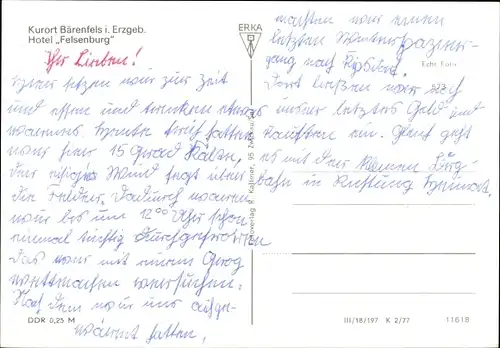 Kurort Bärenfels i. Erzgeb.
Hotel „Felsenburg"
Ihr Lieben!
Hier sitzen wir zur Zeit
und essen und trinken etwas
warmes. Heute früh hatten
wir hier 15 Grad Kälte,
der eisige Wind fegt über
die Felder. Dadurch waren
wir bis um 12⁰⁰ Uhr schon
einmal tüchtig durchgefroren
Das wir mit einem Grog
wettmachen versuchen.
Nach dem wir uns aufge-
wärmt hatten,
DDR 0,25 M
ERKA
machten wir einen
letzten Winterspazier-
gang nach Kipsdorf.
Echt Foto
Dort ließen wir
unser letztes Geld mit
Kaufen ein. Jetzt geht
es mit der kleinen
bahn in Richtung Heimat.
III/18/197 K 2/77 11618